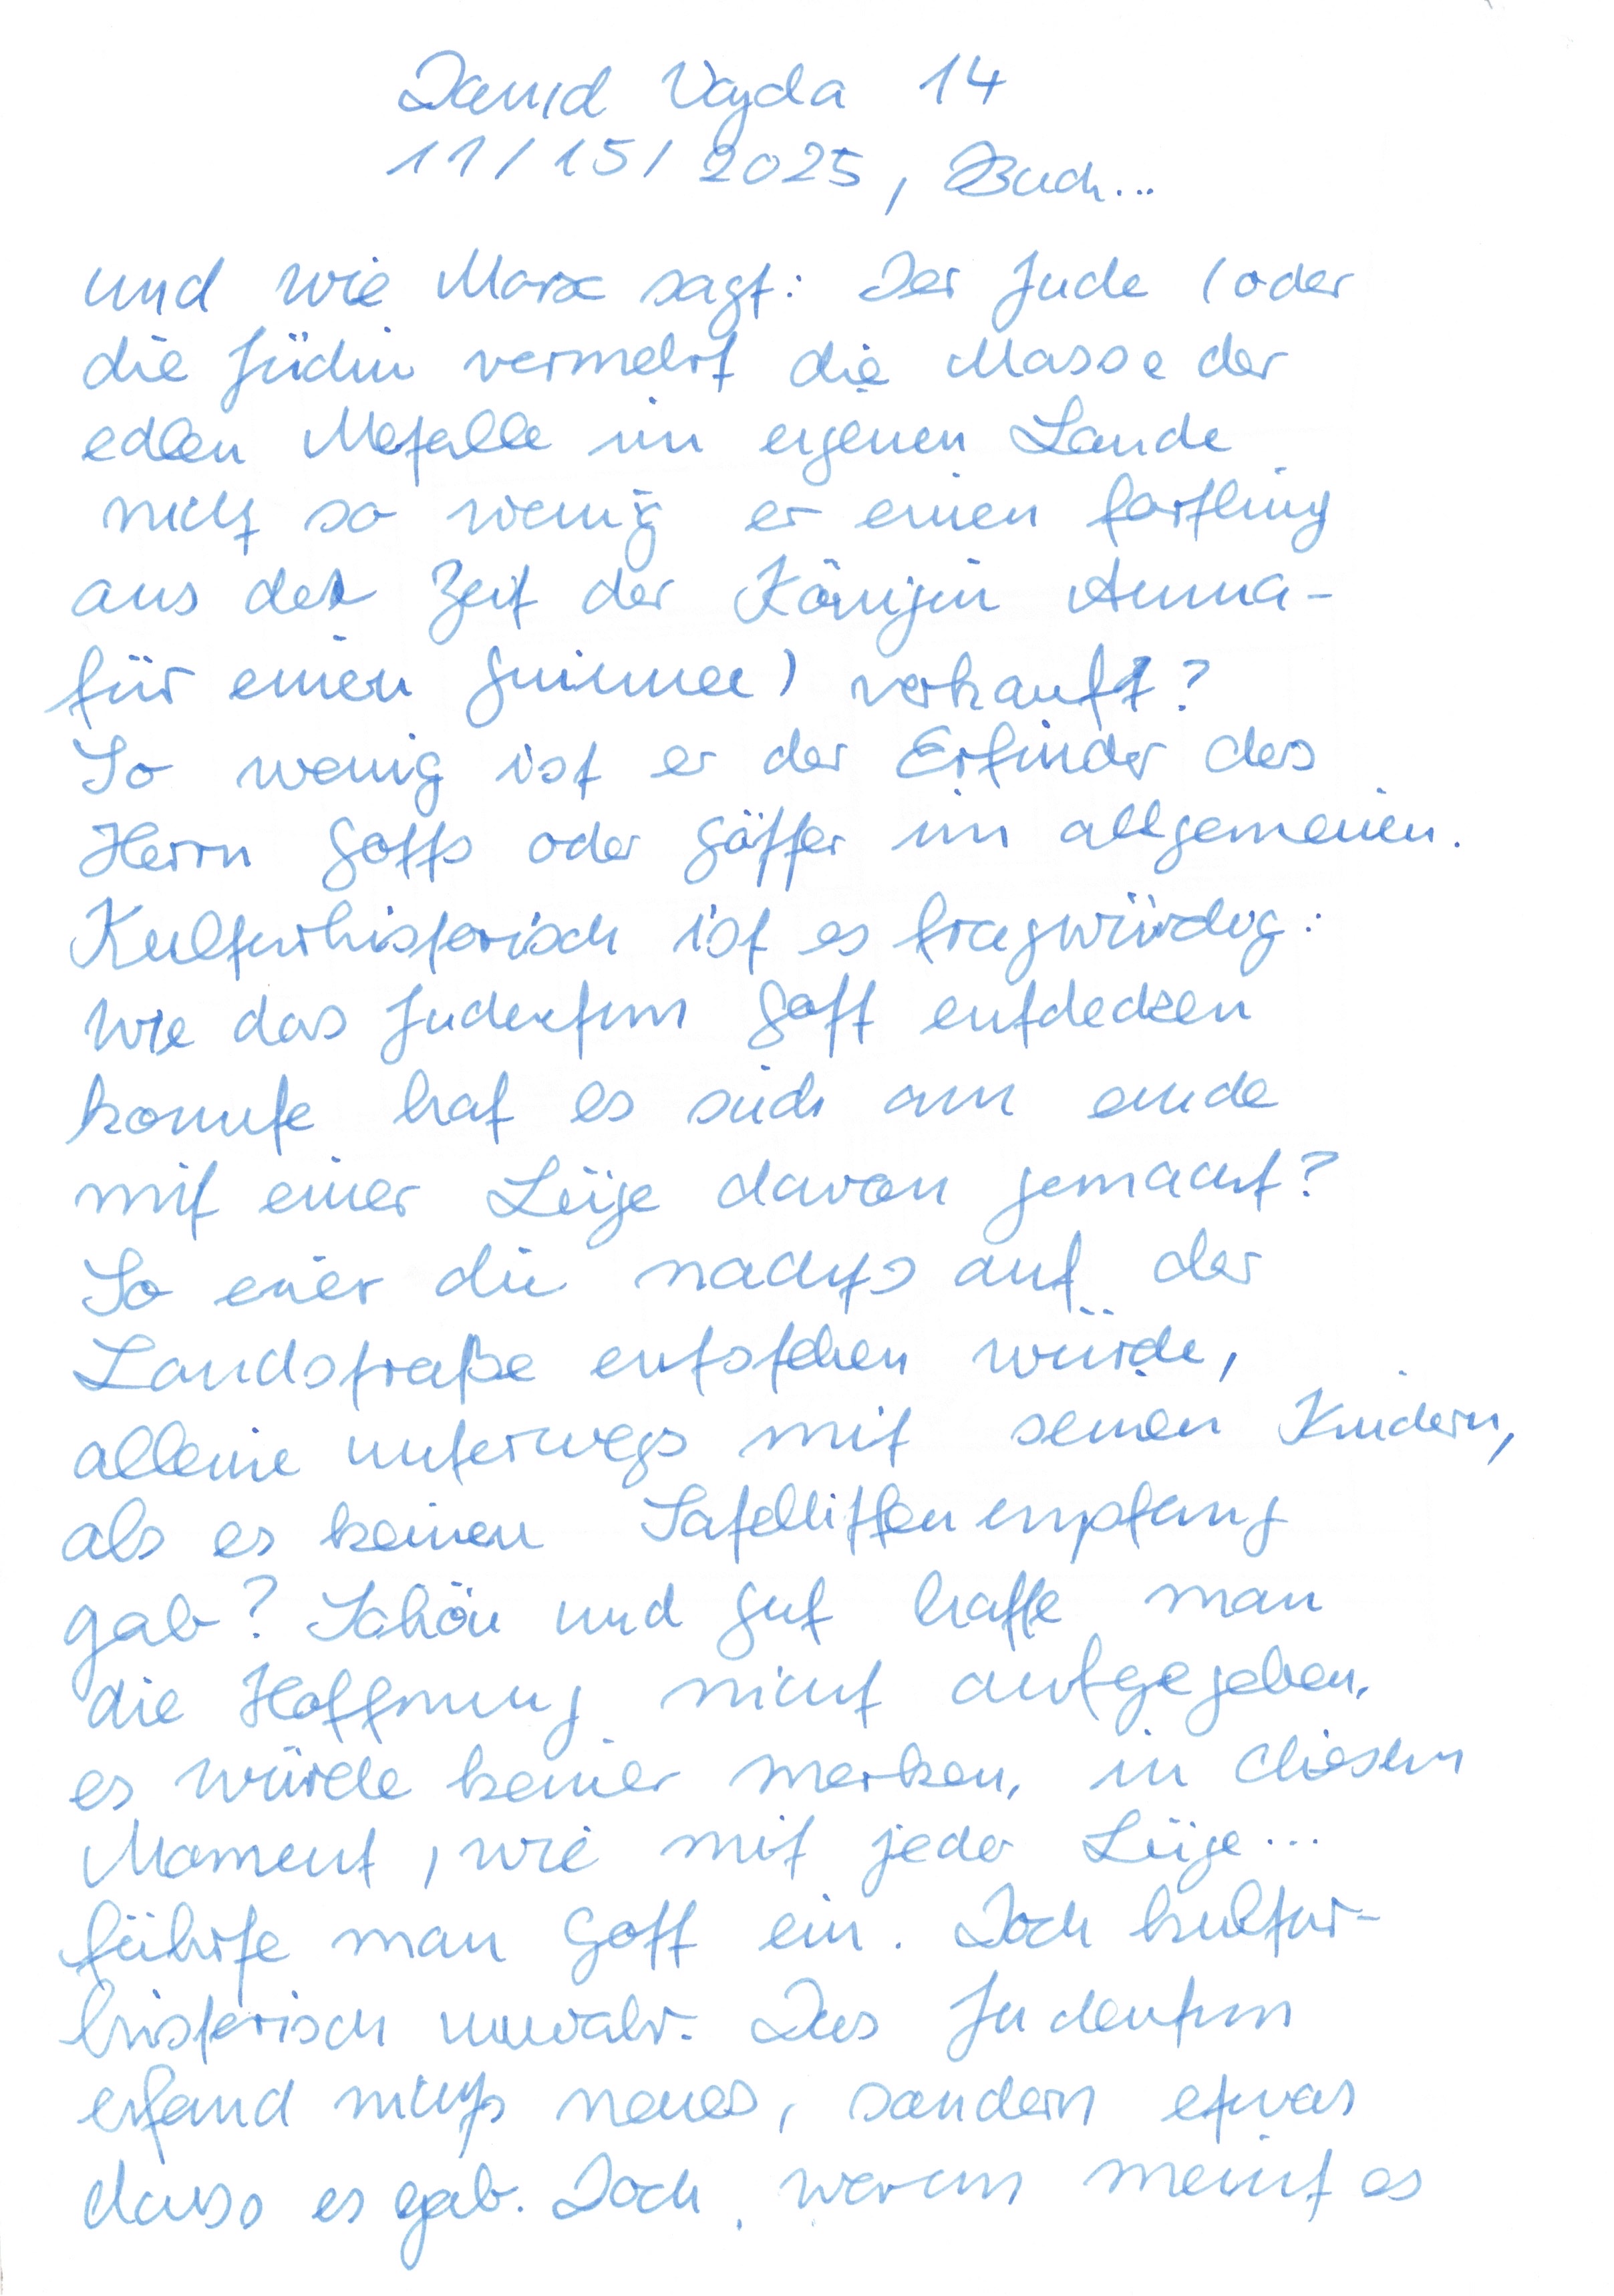 David Vajda 14
11/15/2025, Buch...
und wie Marx sagt: Der Jude (oder
die Jüdin vermehrt die Masse der
edlen Metalle im eigenen Lande
nicht so wenig er einen farthing
aus der Zeit der Königin Anna-
für einen Guinnee) verkauft?
So wenig ist er der Erfinder des
Herrn Gotts oder Götter im allgemeinen.
Kulturhistorisch ist es fragwürdig:
Wie das Judentum Gott entdecken
konnte hat es sich am ende
mit einer Lüge davon gemacht?
So einer die nachts auf der
Landstraße entstehen würde,
alleine unterwegs mit seinen Kindern,
als es keinen Satellitten empfang
gab? Schön und gut hatte man
die Hoffnung nicht aufgegeben,
es würde keiner merken, in diesem
Moment, wie mit jeder Lüge...
führte man Gott ein. Doch kultur-
historisch unwahr. Das Judentum
erfand nichts neues, sondern etwas
dass es gab. Doch, warum meint es